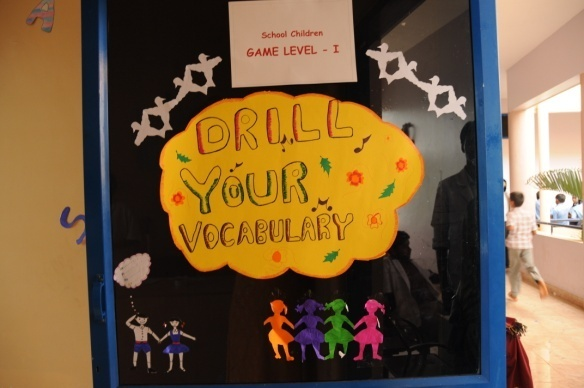 A
School Children
GAME LEVEL - I
DRILL
YOUR
VOCABULARY
S